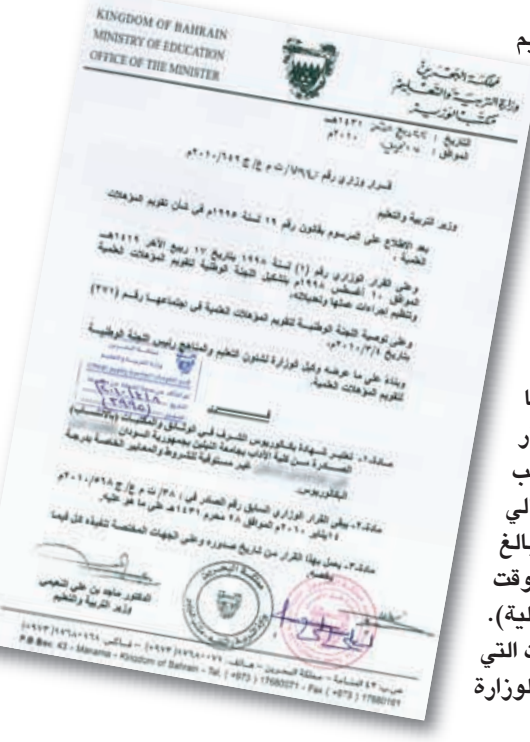 KINGDOM OF BAHRAIN
MINISTRY OF EDUCATION
OFFICE OF THE MINISTER
مملكة البحرين
وزارة التربية والتعليم
مكتب الوزير
التاريخ : ربيع ١٤٣١هـ
الموافق : ٢٠١٠م
قرار وزاري رقم / ت م ع / ٢٠١٠م
وزير التربية والتعليم
بعد الاطلاع على المرسوم بقانون رقم ١٩ لسنة ١٩٩٥م في شأن تقويم المؤهلات
العلمية ،
وعلى القرار الوزاري رقم (١) لسنة ١٩٩٨ بتاريخ ١٧ ربيع الآخر ١٤١٩هـ
الموافق ١٠ أغسطس ١٩٩٨م بتشكيل اللجنة الوطنية لتقويم المؤهلات العلمية
وتنظيم إجراءات عملها وتعديلاته،
وعلى توصية اللجنة الوطنية لتقويم المؤهلات العلمية في اجتماعها رقم (٣٧١)
بتاريخ ٢٠١٠/٣/١م،
وبناء على ما عرضه وكيل الوزارة لشئون التعليم والمناهج رئيس اللجنة الوطنية
لتقويم المؤهلات العلمية.
قرر
مادة١- تعتبر شهادة بكالوريوس الشرف في الوثائق والمكتبات (بالانتساب)
الصادرة من كلية الآداب بجامعة النيلين بجمهورية السودان
غير مستوفية للشروط والمعايير الخاصة بدرجة
البكالوريوس.
مادة٢- يبقى القرار الوزاري السابق رقم الصادر في /٣٨ ت م ع/ ج ٢٠١٠/٥٦٨م
١٤ يناير ٢٠١٠م الموافق ٢٨ محرم ١٤٣١هـ على ما هو عليه.
مادة٣- يعمل بهذا القرار من تاريخ صدوره وعلى الجهات المختصة تنفيذه كل فيما
يخصه.
الدكتور ماجد بن علي النعيمي
وزير التربية والتعليم
ص.ب: ٤٣ المنامة - مملكة البحرين - هاتف: ١٧٦٨٠٠٧١ (٩٧٣+) - فاكس ١٧٦٨٠١٦١ (٩٧٣+)
P.O.Box: 43 - Manama - Kingdom of Bahrain - Tel. ( +973 ) 17680071 - Fax ( +973 ) 17680161
يم
ا
ار
ب
لي
بالغ
وقت
لية).
ت التي
لوزارة